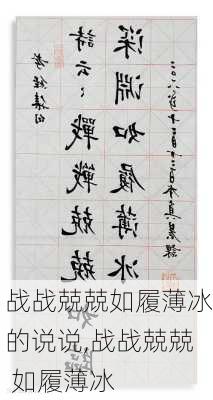 詩云：戰戰兢兢如臨
深淵如履薄冰
战战兢兢如履薄冰
的说说,战战兢兢
如履薄冰